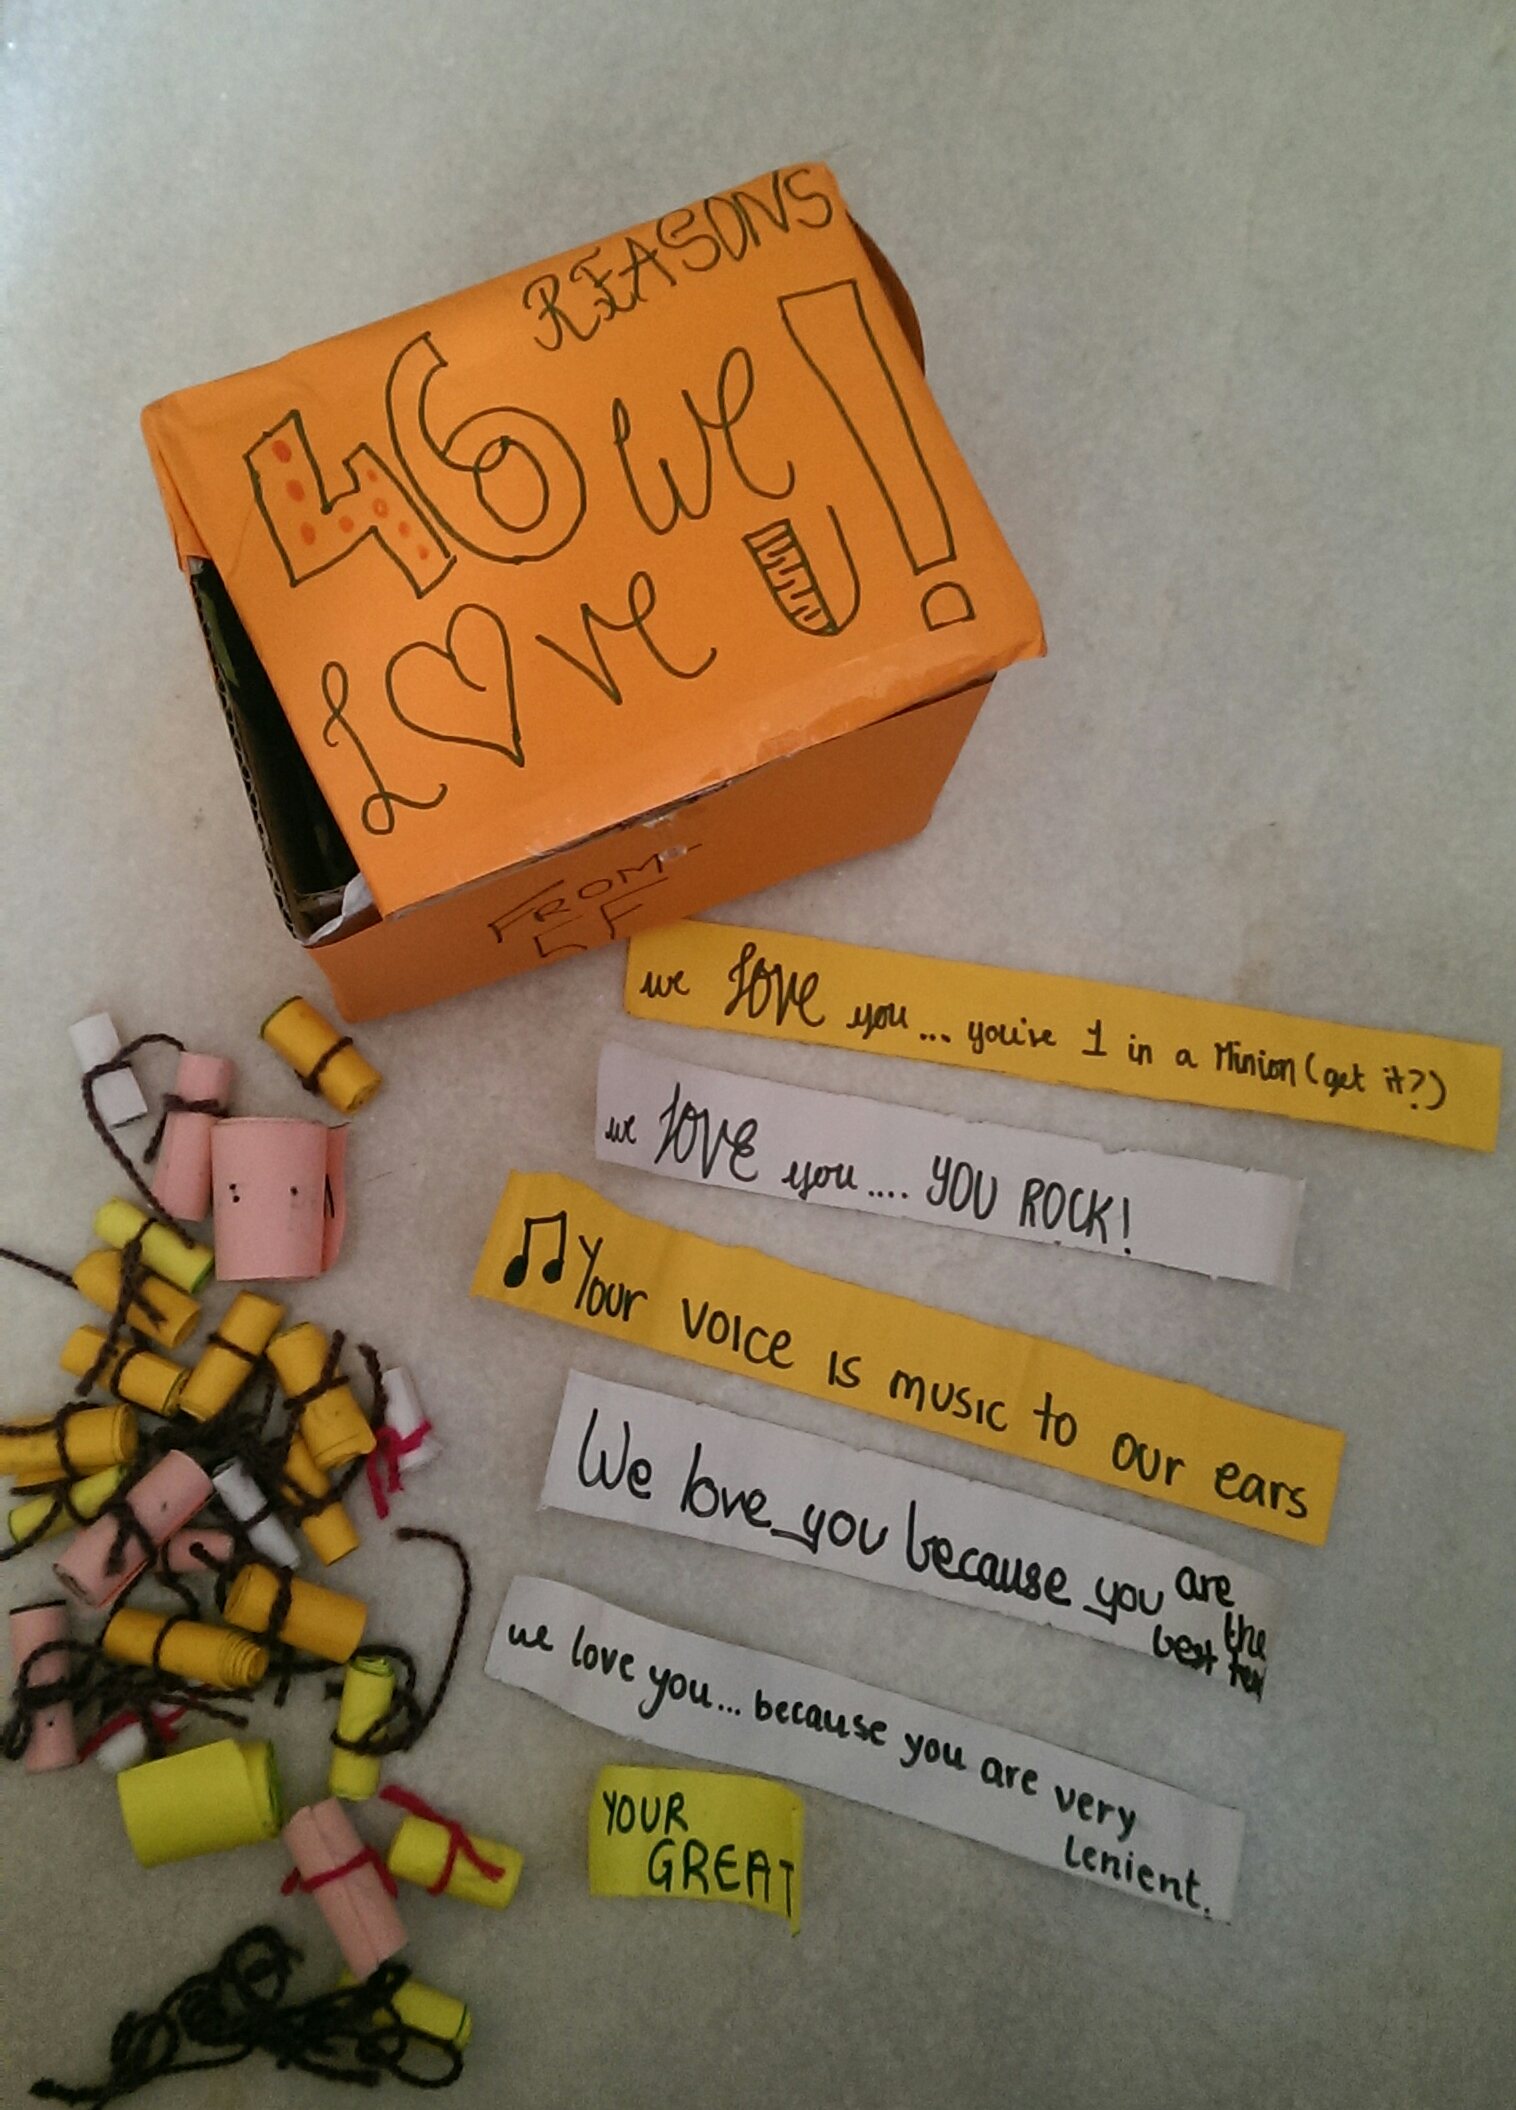 REASONS
46 we
Love U!
FROM-
5F
we LOVE you... you're 1 in a Minion (get it?)
we LOVE you.... YOU ROCK!
Your voice is music to our ears
We love you because you are
the
best
we love you... because you are very
lenient.
YOUR
GREAT